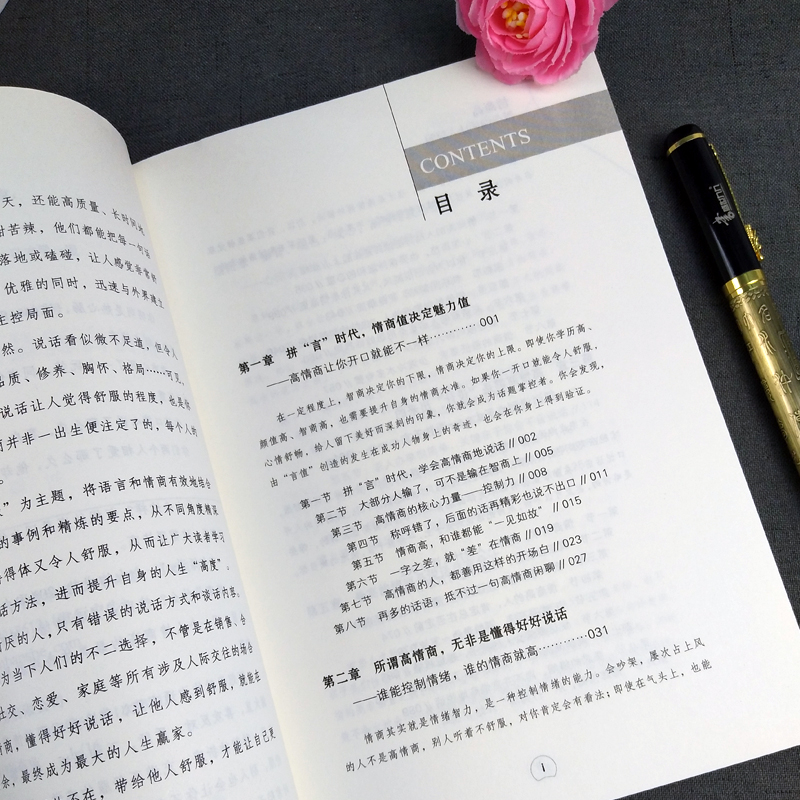 天，还能高质量、长时间地
甜苦辣，他们都能把每一句话
落地或磕碰，让人感觉非常舒
优雅的同时，迅速与外界建立
主控局面。
然。说话看似微不足道，但令人
品质、修养、胸怀、格局……可见，
说话让人觉得舒服的程度，也是你
而并非一出生便注定了的，每个人的
。
”为主题，将语言和情商有效地结合
的事例和精炼的要点，从不同角度精深
得体又令人舒服，从而让广大读者学习
话方法，进而提升自身的人生“高度”。
讨厌的人，只有错误的说话方式和谈话内容。
为当下人们的不二选择，不管是在销售、台
社交、恋爱、家庭等所有涉及人际交往的场合
商，懂得好好说话，让他人感到舒服，就能在
余，最终成为最大的人生赢家。
不在，带给他人舒服，才能让自己更
CONTENTS
目 录
第一章 拼“言”时代，情商值决定魅力值
——高情商让你开口就能不一样………… 001
在一定程度上，智商决定你的下限，情商决定你的上限。即使你学历高、
颜值高、智商高，也需要提升自身的情商水准。如果你一开口就能令人舒服，
心情舒畅，给人留下美好而深刻的印象，你就会成为话题掌控者。你会发现，
由“言值”创造的发生在成功人物身上的奇迹，也会在你身上得到验证。
第一节 拼“言”时代，学会高情商地说话 // 002
第二节 大部分人输了，可不是输在智商上 // 005
第三节 高情商的核心力量——控制力 // 008
第四节 称呼错了，后面的话再精彩也说不出口 // 011
第五节 情商高，和谁都能“一见如故” // 015
第六节 一字之差，就“差”在情商 // 019
第七节 高情商的人，都善用这样的开场白 // 023
第八节 再多的话语，抵不过一句高情商闲聊 // 027
第二章 所谓高情商，无非是懂得好好说话
——谁能控制情绪，谁的情商就高…………031
情商其实就是情绪智力，是一种控制情绪的能力。会吵架，屡次占上风
的人不是高情商，别人听着不舒服，对你肯定会有看法；即使在气头上，也能
1